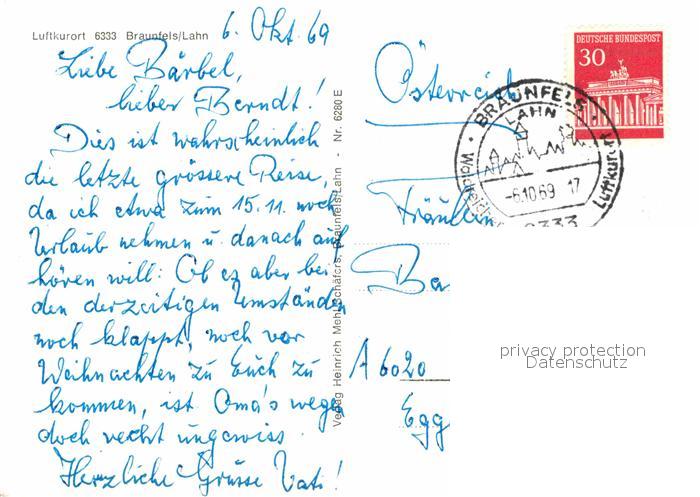 Luftkurort 6333 Braunfels/Lahn
6. Okt. 69
Liebe Bärbel,
lieber Berndt!
Dies ist wahrscheinlich
die letzte grössere Reise,
da ich etwa zum 15.11. noch
Urlaub nehmen u. danach auf
hören will. Ob es aber bei
den derzeitigen Umständen
noch klappt, noch vor
Weihnachten zu Euch zu
kommen, ist Oma's wege
doch recht ungewiss.
Herzliche Grüsse Vati!
Verlag Heinrich Mehl, Braunfels/Lahn - Nr. 6280 E
DEUTSCHE BUNDESPOST
30
BRAUNFELS
LAHN
-6.10.69 17
Luftkurort
6333
Österreich
Fräulein
Ba
A 6020
Egg
privacy protection
Datenschutz